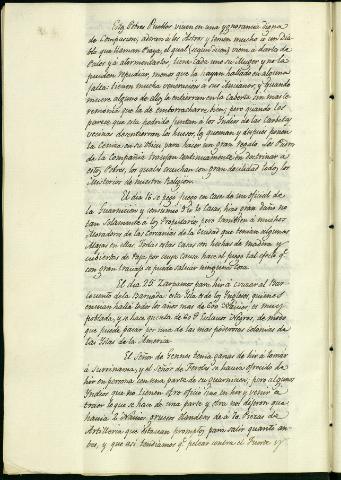 Estos Pobres Pueblos viven en una ygnorancia digna
de Compasion; adoran à los Astros y temen mucho à un Dia-
blo que llaman Piaye, el qual (segun dicen) viene à darles de
Palos y à atormentarlos, tiene cada uno su Muger y no la
pueden repudiar, menos que la hayan hallado en alguna
falta: tienen mucha veneracion à sus Ancianos; y quando
muere alguno de ellos le entierran en la Caverna sin mas ce-
remonia que la de emborracharse bien; pero quando los
juntan à los Yndios de las Carbetas
vecinas desentierran los huesos, los queman y despues ponen
la Ceniza en su Ubicu para hacer un gran regalo. Los Padres
de la Compañia trabajan continuamente en doctrinar à
estos Pobres, los quales escuchan con gran docilidad todos los
Misterios de nuestra Religion.
El dia 16 se pegó fuego en casa de un oficial de
la Guarnicion y consumió de 10 Casas, hizo gran daño no
tan solamente à los Propietarios pero tambien à muchos
Moradores de las Cercanias de la Ciudad que tenian algunas
Alajas en ellas. Todas estas casas son hechas de madera y
cubiertas de Paja por cuya causa hace el fuego tal efecto q.e
con gran trabajo se puede salvar ninguna cosa.
El dia 25 Zarpamos para hir à cruzar al Bar-
lovento de la Barbada: esta Isla es de los Yngleses, quienes
embian halla todos los años mas de 200 Navios; es muy
poblada, y se hace quenta de 40 Esclavos Negros, de modo
que puede pasar por una de las mas poderosas colonias de
las Yslas de la America.
El Señor de Gennes tenia ganas de hir à tomar
à Surinama, y el Señor de Feroles se havia ofrecido de
hir en persona con una parte de su guarnicion; pero algunos
Yndios que no tienen otro oficio que en hir y venir à
traer lo que se hace de una parte y otra nos dijeron que
havia 2 Navios gruesos Olandeses de à 70 Piezas de
Artilleria que estavan promptos para salir quanto an-
tes, y que asi tendriamos q.e pelear contra el Fuerte y